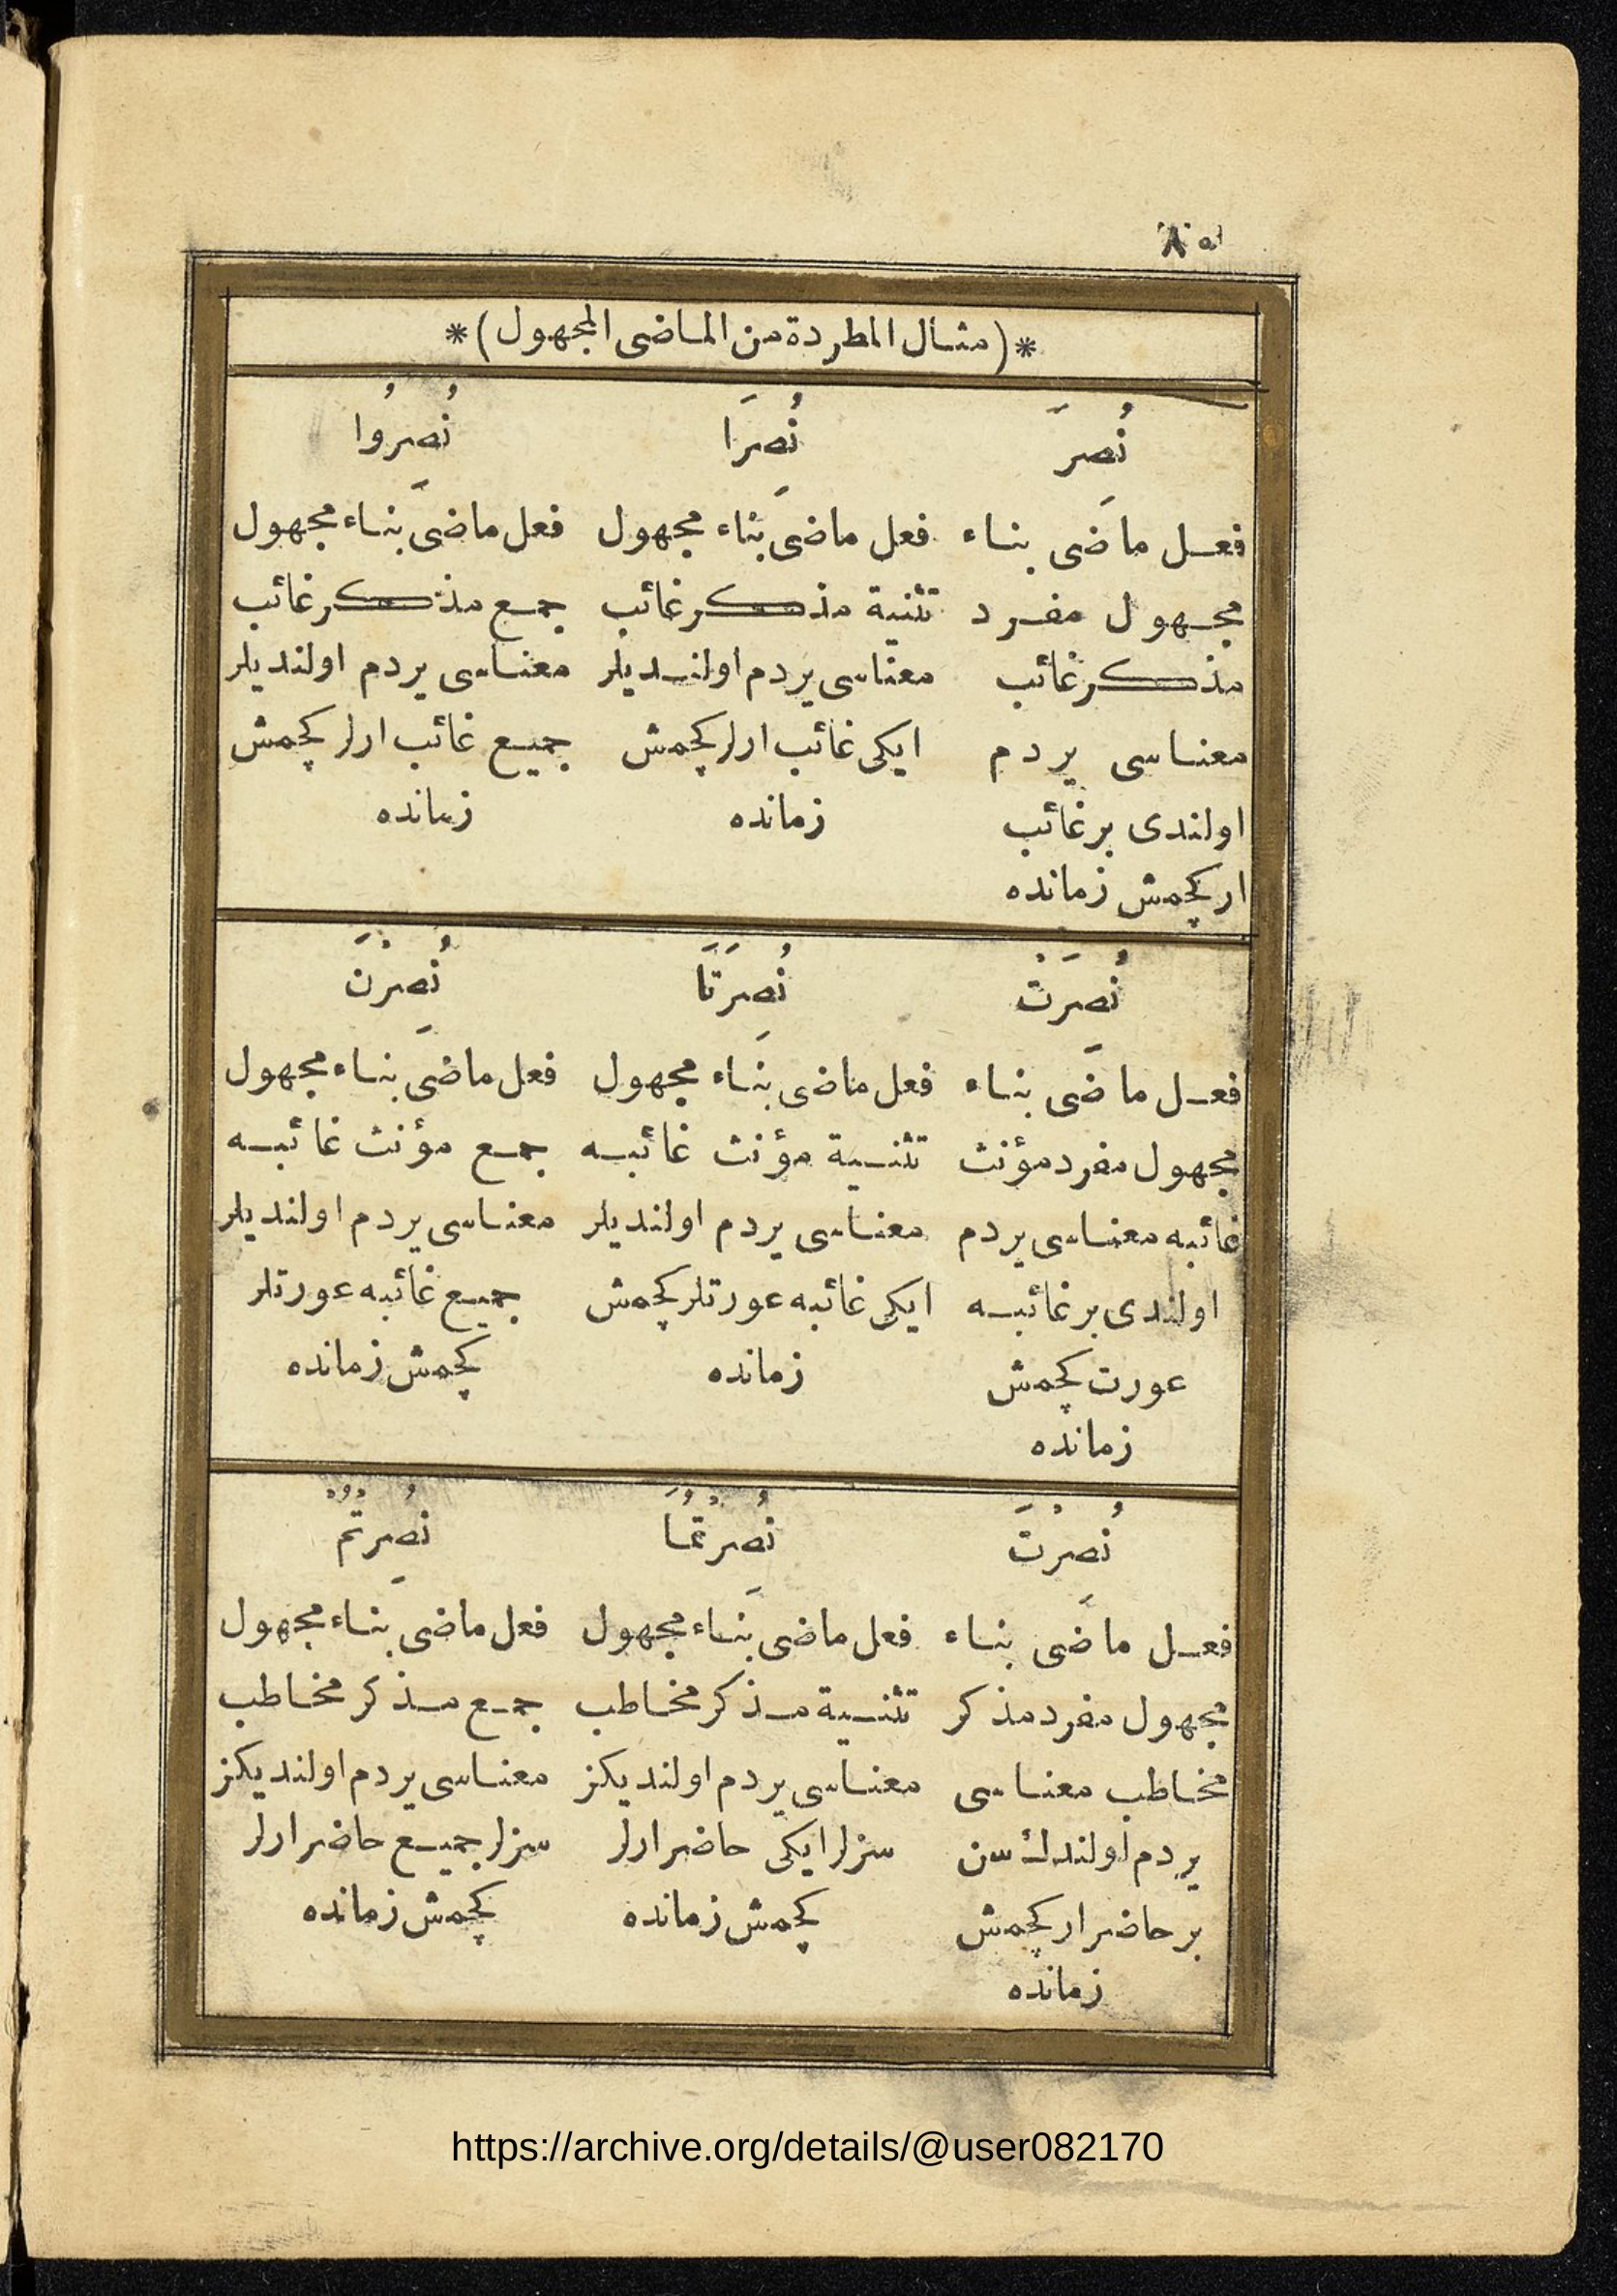 ٨٥
*(مثال المطردة من الماضى المجهول)*
نُصِرَ
فعل ماضى بناء
مجهول مفرد
مذكر غائب
معناسى يردم
اولندى بر غائب
ار كچمش زمانده
نُصِرَا
فعل ماضى بناء مجهول
تثنية مذكر غائب
معناسى يردم اولنديلر
ايكى غائب ارلر كچمش
زمانده
نُصِرُوا
فعل ماضى بناء مجهول
جمع مذكر غائب
معناسى يردم اولنديلر
جميع غائب ارلر كچمش
زمانده
نُصِرَتْ
فعل ماضى بناء
مجهول مفرد مؤنث
غائبه معناسى يردم
اولندى بر غائبه
عورت كچمش
زمانده
نُصِرَتَا
فعل ماضى بناء مجهول
تثنية مؤنث غائبه
معناسى يردم اولنديلر
ايكى غائبه عورتلر كچمش
زمانده
نُصِرْنَ
فعل ماضى بناء مجهول
جمع مؤنث غائبه
معناسى يردم اولنديلر
جميع غائبه عورتلر
كچمش زمانده
نُصِرْتَ
فعل ماضى بناء
مجهول مفرد مذكر
مخاطب معناسى
يردم اولندك سن
بر حاضر ار كچمش
زمانده
نُصِرْتُمَا
فعل ماضى بناء مجهول
تثنية مذكر مخاطب
معناسى يردم اولنديكز
سزلر ايكى حاضر ارلر
كچمش زمانده
نُصِرْتُمْ
فعل ماضى بناء مجهول
جمع مذكر مخاطب
معناسى يردم اولنديكز
سزلر جميع حاضر ارلر
كچمش زمانده
https://archive.org/details/@user082170